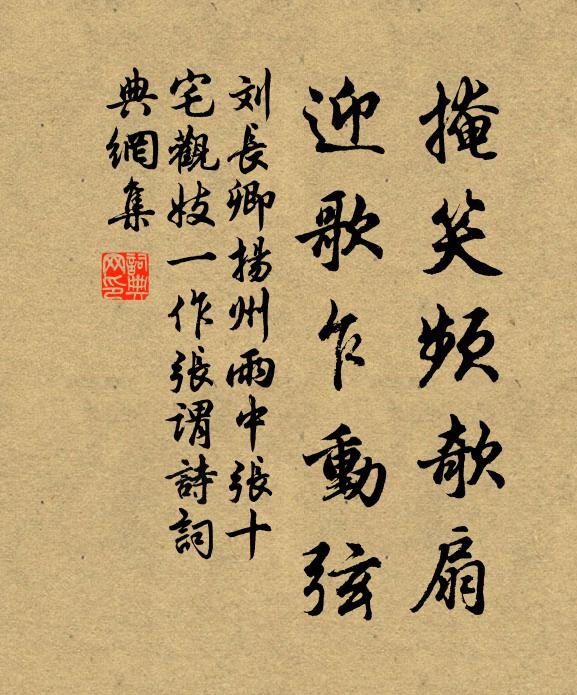 掩笑频欹扇
迎歌乍動弦
刘長卿揚州雨中張十
宅觀妓一作張謂詩詞
典網集
詞典
网印